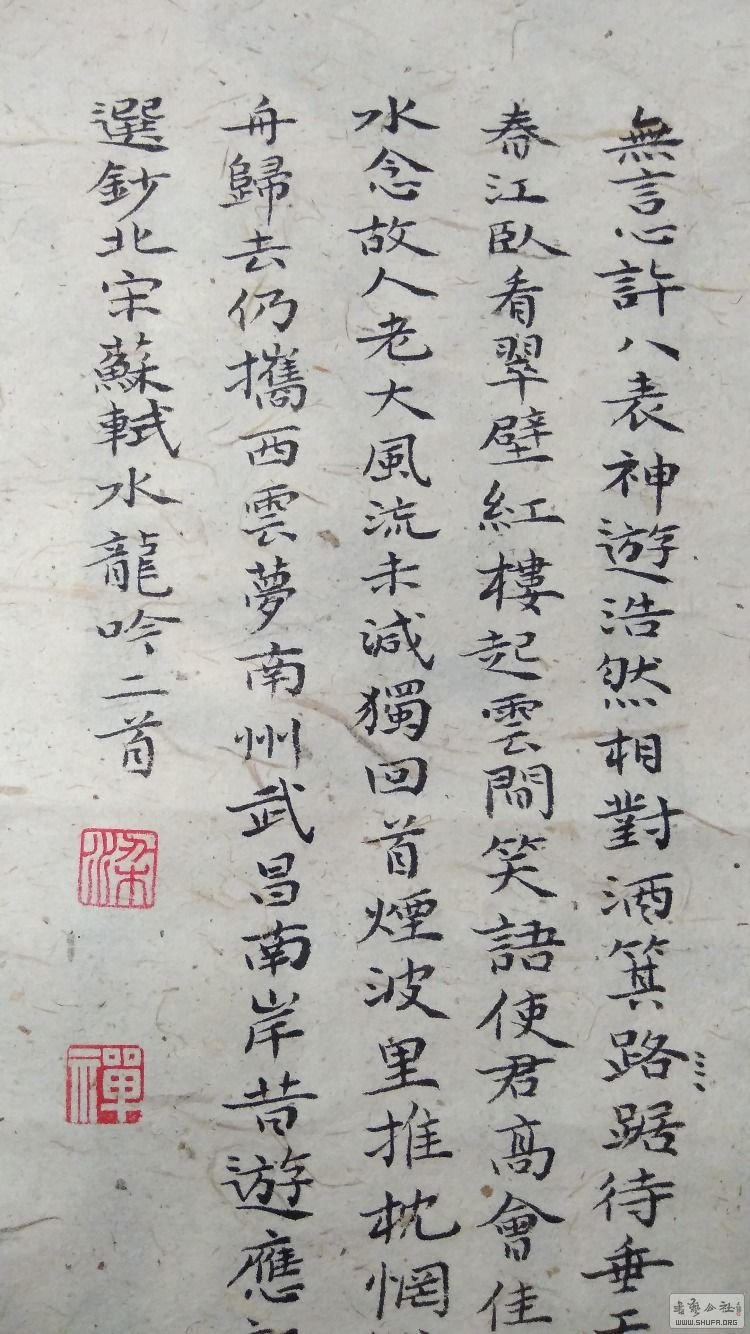 無言心許八表神遊浩然相對酒箕路踞待垂
春江臥看翠壁紅樓起雲間笑語使君高會佳
水念故人老大風流未減獨回首煙波里推枕惘
舟歸去仍攜西雲夢南州武昌南岸昔遊應
選鈔北宋蘇軾水龍吟二首
梁
禪
書藝公社
WWW.SHUFA.ORG